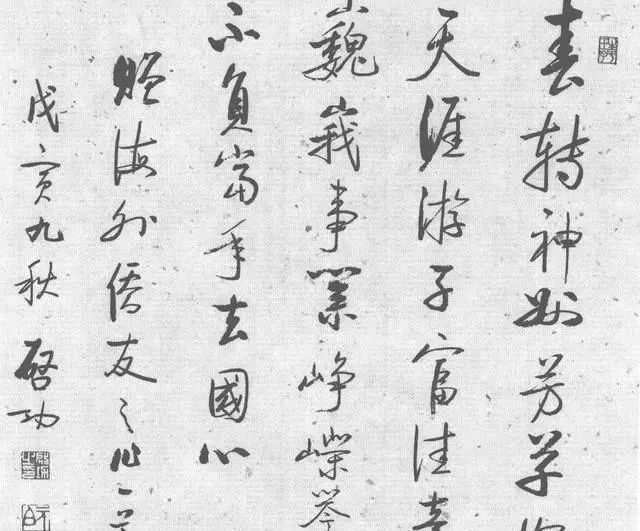 春轉神州芳草
天涯游子富佳
巍峩事業崢嶸
不負當年去國心
贈海外僑友之作一首
戊寅九秋 啓功